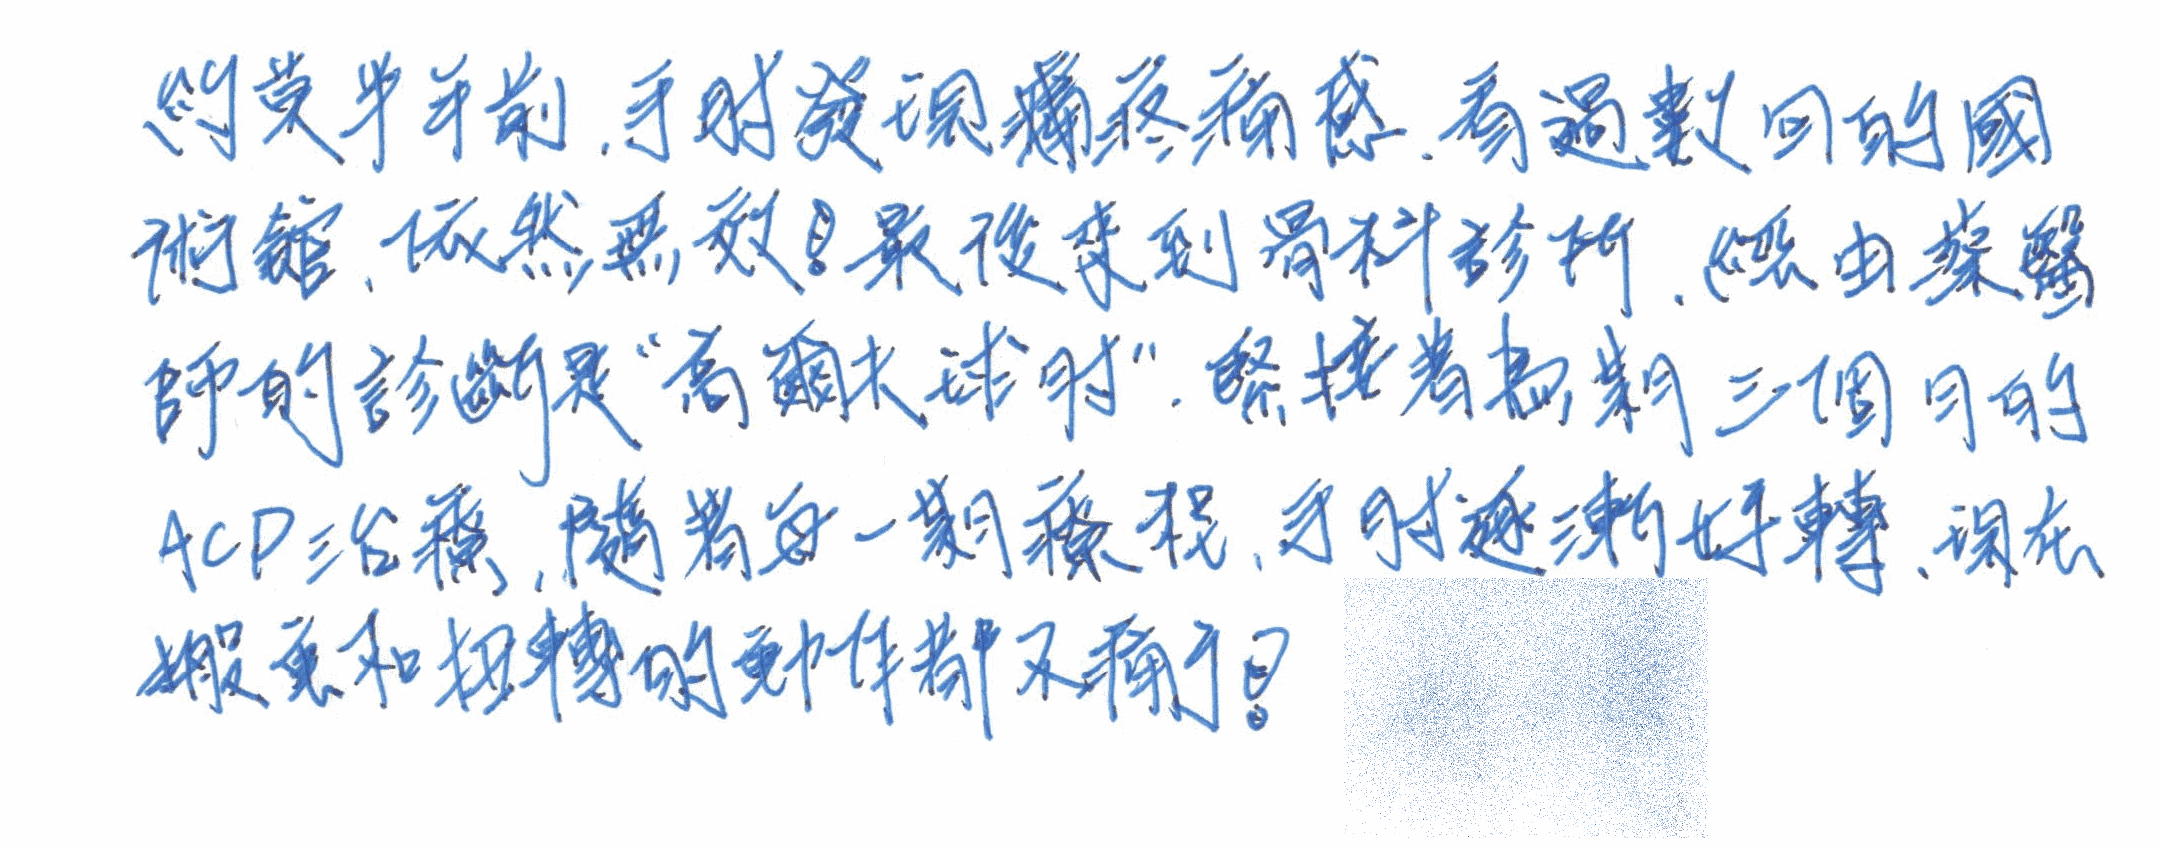 約莫半年前,手肘發現痛疼痛感,看過數回的國
術館,依然無效!最後來到骨科診所,經由蔡醫
師的診斷是“高爾夫球肘”.緊接著為期三個月的
ACP治療,隨著每一期療程,手肘逐漸好轉,現在
搬重和扭轉的動作都不痛了!